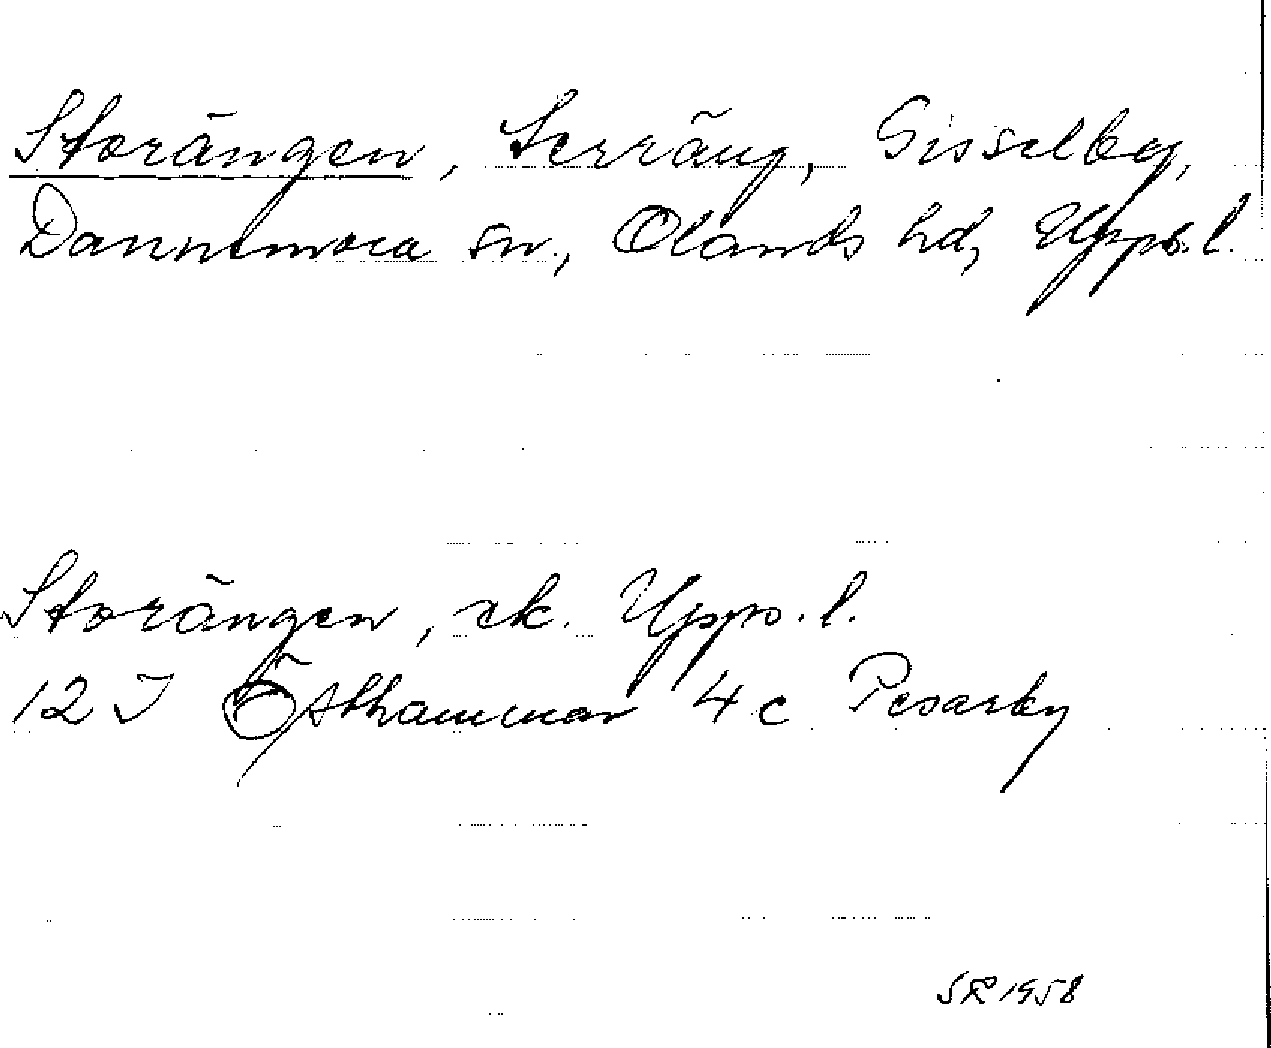 Storängen, Terräng, Gisselby,
Dannemora sn., Olands hd, Uppl.
Storängen, ek. Uppl.
12 I Östhammar 4 c Pesarby
SR 1958